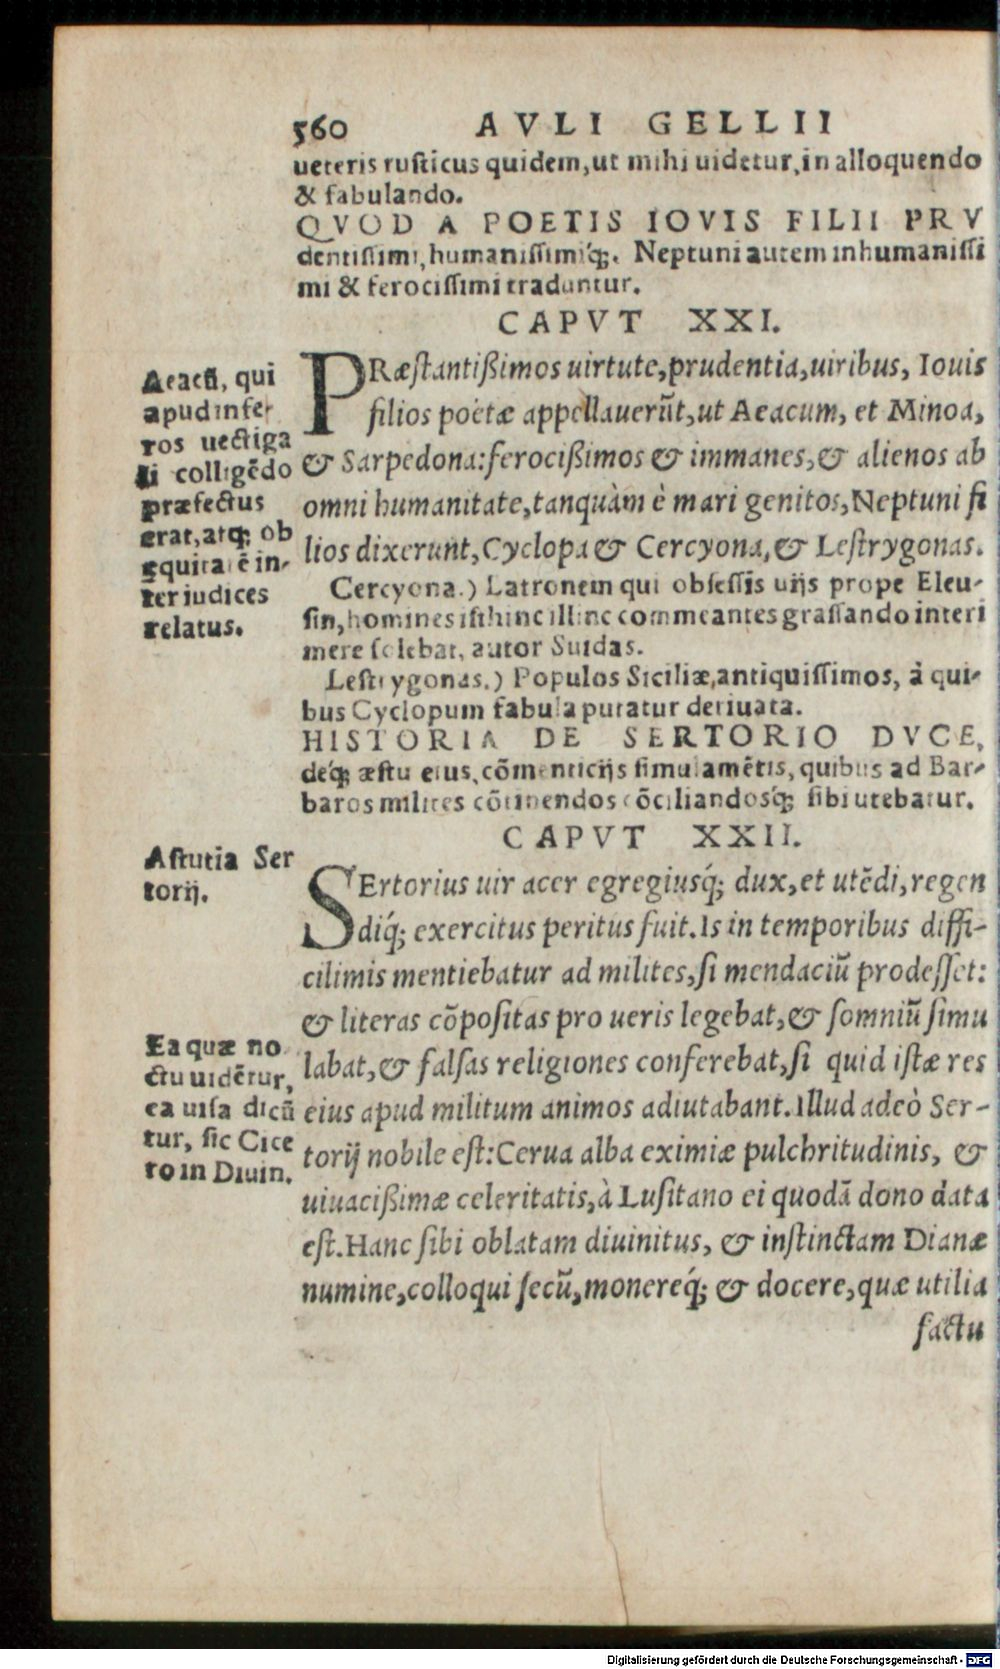 560 AVLI GELLII
ueteris rusticus quidem, ut mihi uidetur, in alloquendo
& fabulando.
QVOD A POETIS IOVIS FILII PRV
dentissimi, humanissimiq́;. Neptuni autem inhumanissi
mi & ferocissimi traduntur.
CAPVT XXI.
PRæstantißimos uirtute, prudentia, uiribus, Iouis
filios poëtæ appellauerũt, ut Aeacum, et Minoa,
& Sarpedona: ferocißimos & immanes, & alienos ab
omni humanitate, tanquàm è mari genitos, Neptuni fi
lios dixerunt, Cyclopa & Cercyona, & Lestrygonas.
Cercyona.) Latronem qui obsessis uijs prope Eleu-
sin, homines isthinc illinc commeantes grassando interi
mere solebat, autor Suidas.
Lestrygonas.) Populos Siciliæ, antiquissimos, à qui-
bus Cyclopum fabula putatur deriuata.
HISTORIA DE SERTORIO DVCE,
deq́; æstu eius, cõmenticijs simulamẽtis, quibus ad Bar-
baros milites cõtinendos cõciliandosq́; sibi utebatur.
CAPVT XXII.
SErtorius uir acer egregiusq́; dux, et utẽdi, regen
diq́; exercitus peritus fuit. Is in temporibus diffi-
cilimis mentiebatur ad milites, si mendaciũ prodesset:
& literas cõpositas pro ueris legebat, & somniũ simu
labat, & falsas religiones conferebat, si quid istæ res
eius apud militum animos adiutabant. Illud adeò Ser-
torij nobile est: Cerua alba eximiæ pulchritudinis, &
uiuacißimæ celeritatis, à Lusitano ei quodã dono data
est. Hanc sibi oblatam diuinitus, & instinctam Dianæ
numine, colloqui secũ, monereq́; & docere, quæ utilia
factu
Aeacũ, qui
apud infe-
ros uectiga
li colligẽdo
præfectus
erat, atq; ob
ęquitatẽ in-
ter iudices
relatus.
Astutia Ser
torij.
Ea quæ no
ctu uidẽtur,
ea uisa dicũ
tur, sic Cice
ro in Diuin.
Digitalisierung gefördert durch die Deutsche Forschungsgemeinschaft - DFG